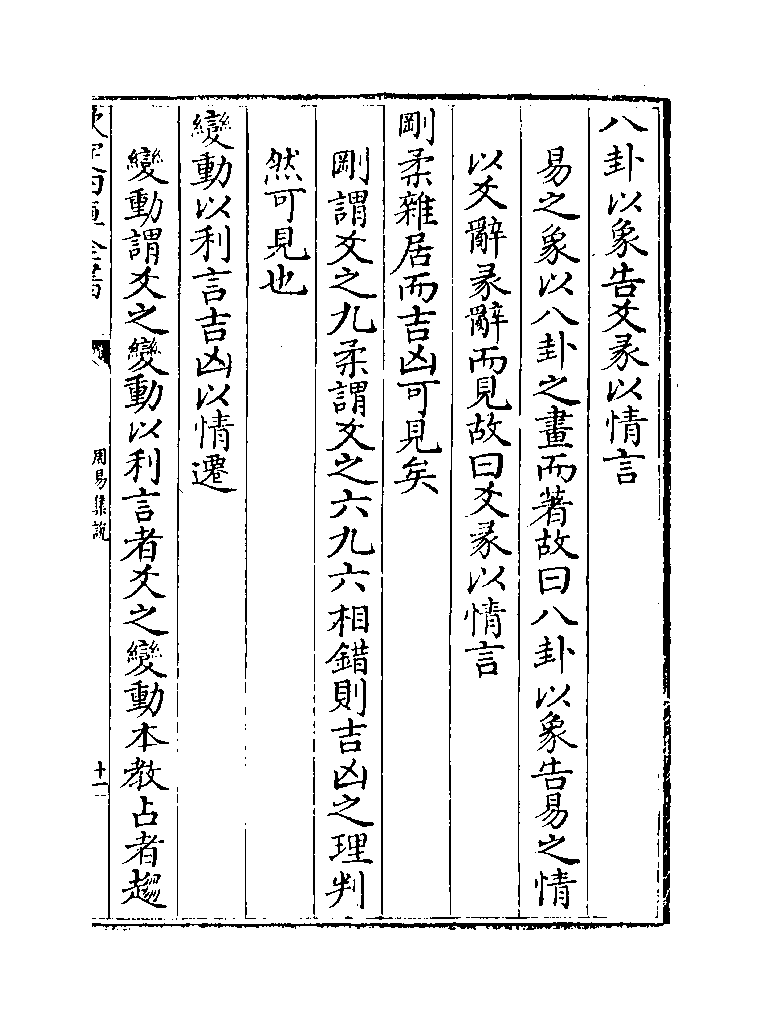 八卦以象告爻彖以情言
易之象以八卦之畫而著故曰八卦以象告易之情
以爻辭彖辭而見故曰爻彖以情言
剛柔雜居而吉凶可見矣
剛謂爻之九柔謂爻之六九六相錯則吉凶之理判
然可見也
變動以利言吉凶以情遷
變動謂爻之變動以利言者爻之變動本教占者趨
周易集說
十一